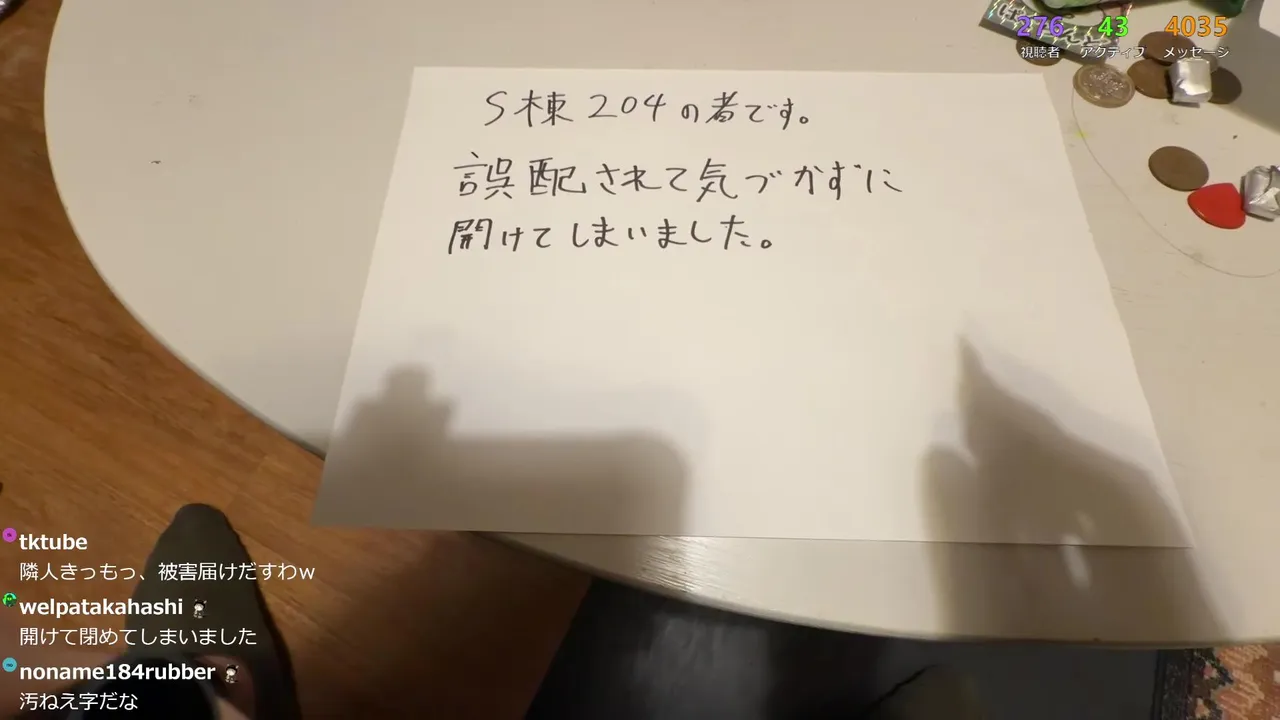 276 43 4035
視聴者 アクティブ メッセージ
S棟204の者です。
誤配されて気づかずに
開けてしまいました。
tktube
隣人きっもっ、被害届けだすわw
welpatakahashi
開けて閉めてしまいました
noname184rubber
汚ねえ字だな